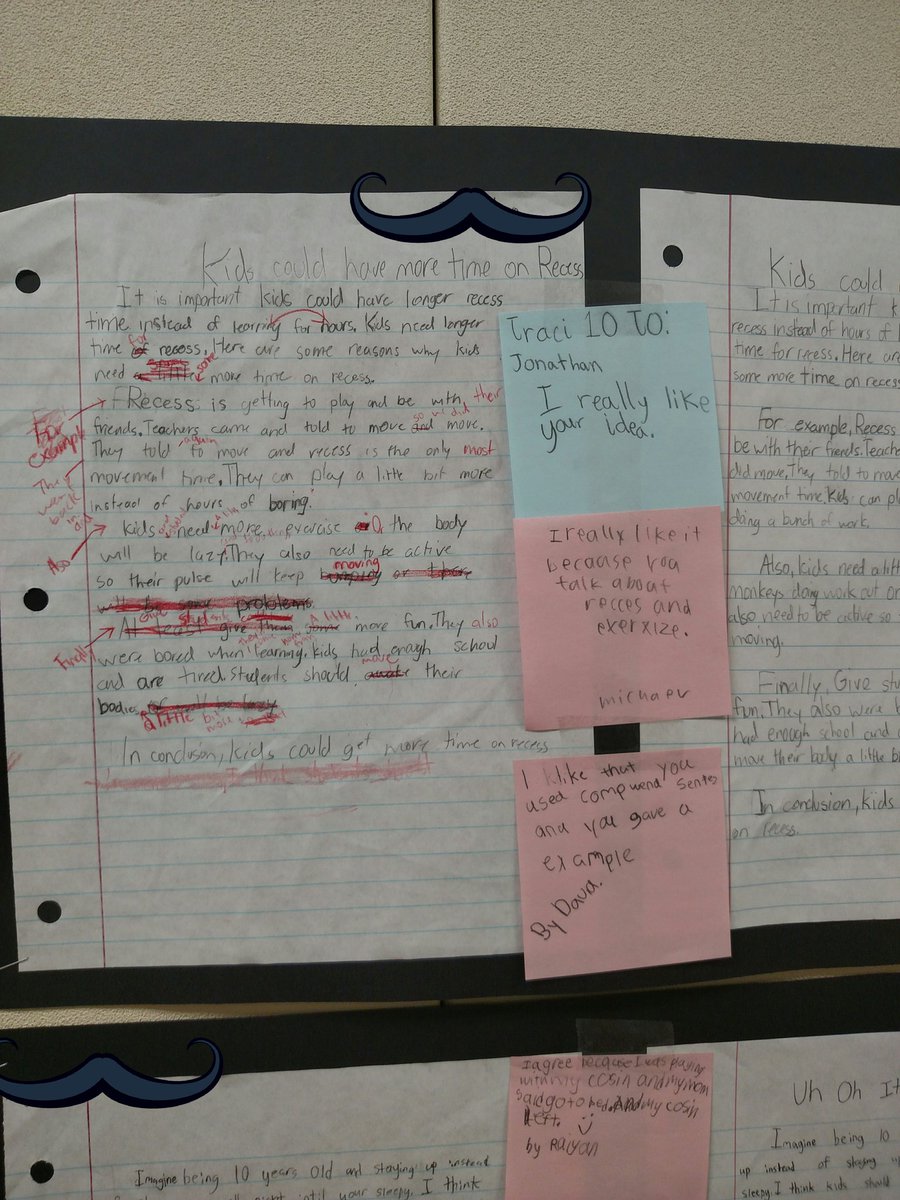 Kids could have more time on Recess
It is important kids could have longer recess
time instead of learning for hours. Kids need longer
time for recess. Here are some reasons why kids
need some more time on recess.
For example
Recess is getting to play and be with their
friends. Teachers came and told to move so we did move.
They told again to move and recess is the only most
movement time. They can play a little bit more
instead of hours of boring.
Also
kids need more exercise Or the body
will be lazy. They also need to be active
so their pulse will keep moving
problems
Finally
At least give them some A little more fun. They also
were bored when learning. kids had enagh school
and are tired. Students should move their
bodies
a little bit more
In conclusion, kids could get more time on recess
Traci 10 TO:
Jonathan
I really like
your idea.
I really like it
becaase you
talk about
recces and
exerxize.
michaer
I like that you
used compwend sentes
and you gave a
example
By Dava.
Kids could
It is important k
recess instead of hours of l
time for recess. Here are
some more time on recess
For example, Recess
be with their friends. Teache
did move. They told to move
movement time. Kids can pl
doing a bunch of work.
Also, kids need a litt
monkeys doing work out Or
also need to be active so
moving.
Finally, Give stu
fun. They also were b
had enough school and a
move their body a little b
In conclusion, kids
on recess.
I agree because I was playing
with my cosin and my mom
said go to bed. And my cosin
left.
by Raiyan
Imagine being 10 years old and staying up instead
until your sleepy. I think
Uh Oh It
Imagine being 10
up instead of staying up
sleepy. I think kids should